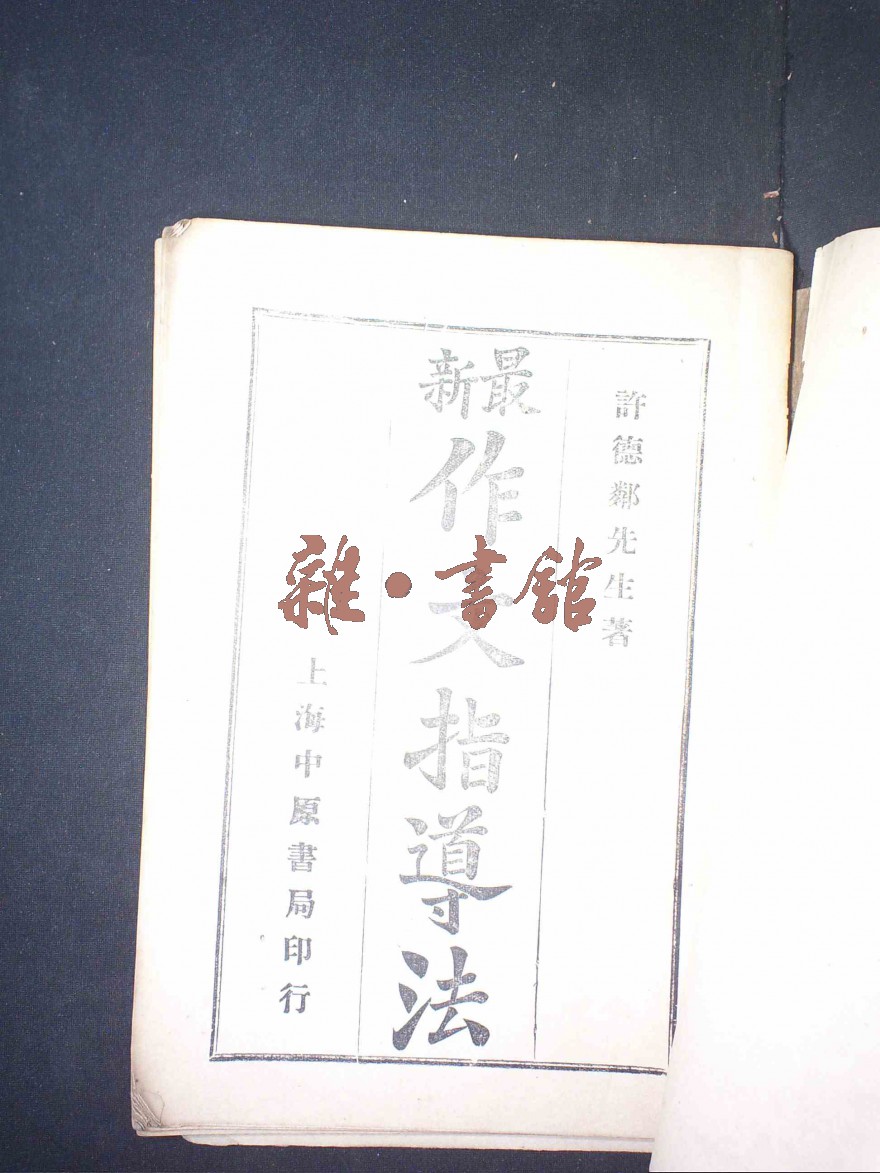 許德鄰先生著
最新
作文指導法
上海中原書局印行
雜·書館